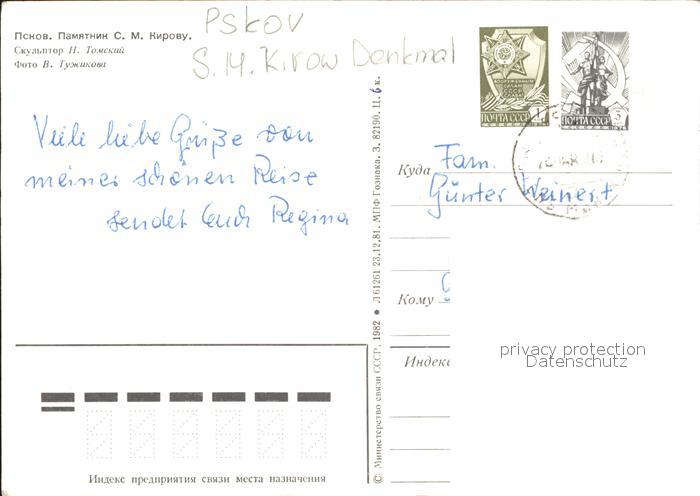 Псков. Памятник С. М. Кирову.
Скульптор Н. Томский
Фото В. Тужикова
Pskov
S. M. Kirow Denkmal
Viele liebe Grüße von
meiner schönen Reise
sendet Euch Regina
ПОЧТА СССР
ПОЧТА СССР 3
Куда Fam.
Günter Weinert
Кому
Индекс
privacy protection
Datenschutz
© Министерство связи СССР, 1982 • Л 61261 23.12.81. МПФ Гознака. З. 82190. Ц. 6 к.
Индекс предприятия связи места назначения